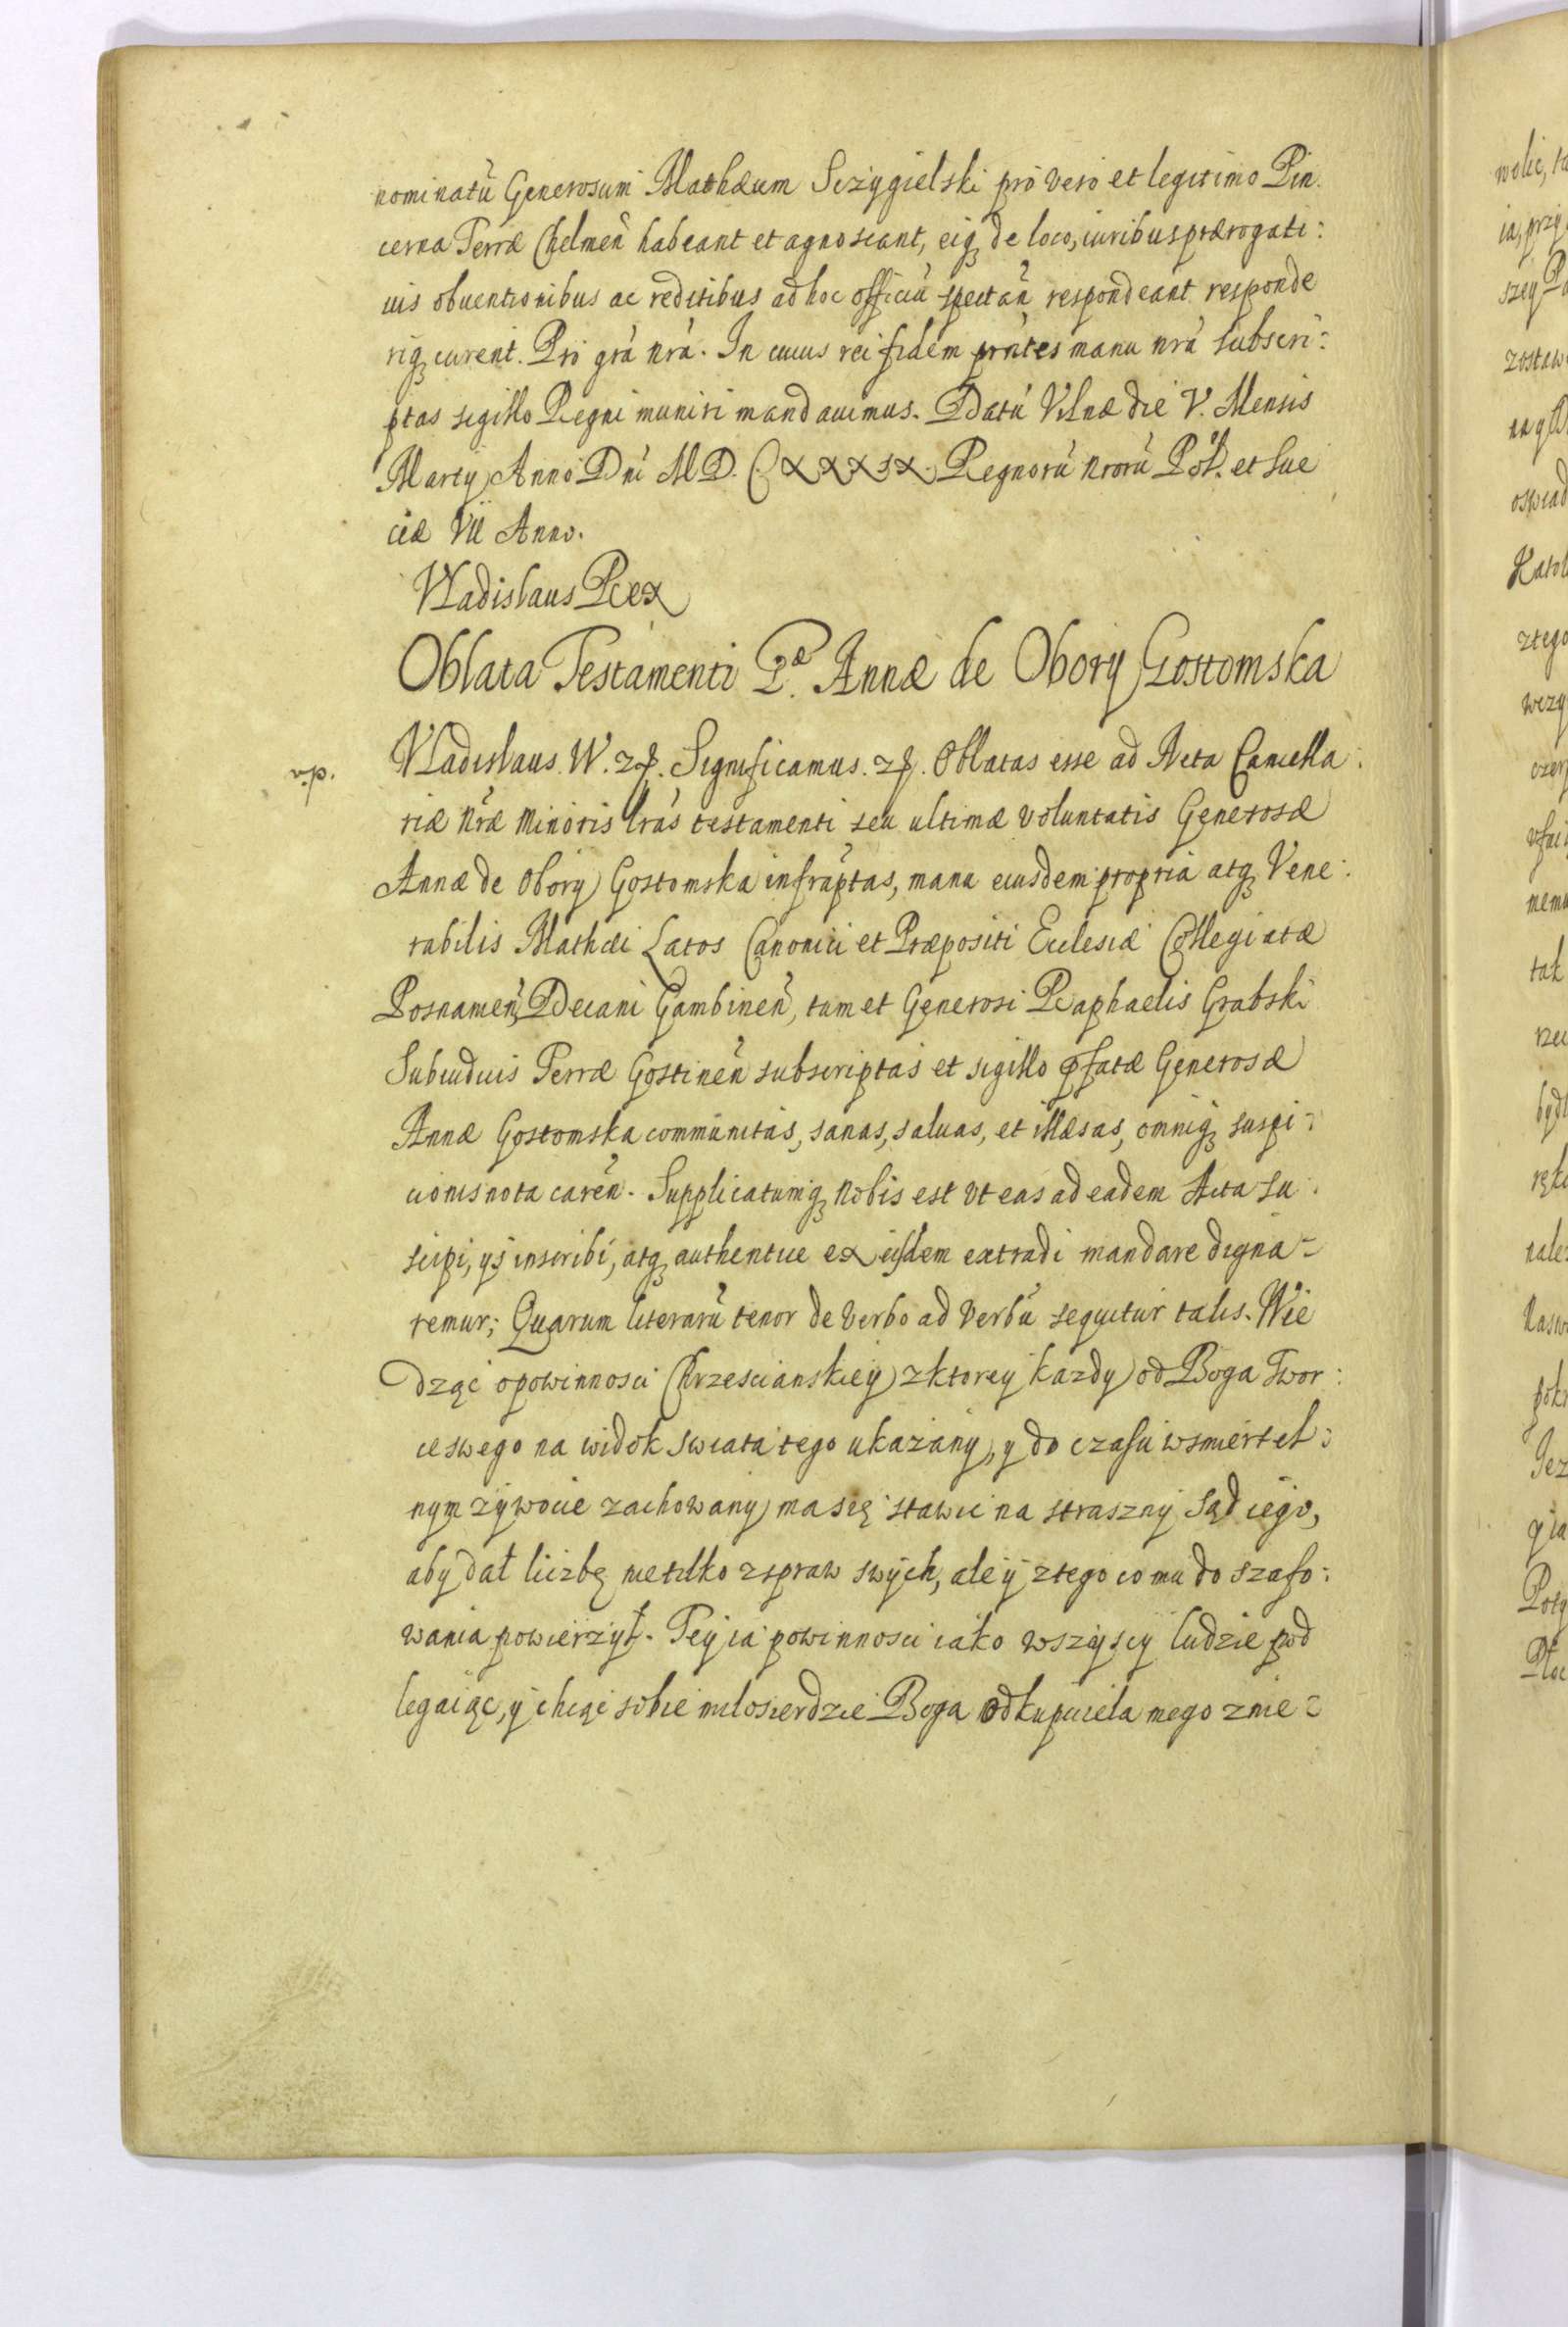 nominatũ Generosum Mathæum Sczygielski pro vero et legitimo Pin
cerna Terræ Chelmeñ habeant et agnoscant, eiq₃ de loco, iuribus prærogati:
uis obuentionibus ac reditibus ad hoc officiũ spectañ respondeant responde
riq₃ curent. Pro grã nrã. In cuius rei fidem prñtes manu nrã subscri:
ptas sigillo Regni muniri mandauimus. Datũ Vilnæ die V. Mensis
Martij Anno Dni M D. C XXXIX. Regnorũ nrorũ Pol. et Sue
ciæ VII Anno.
Vladislaus Rex
Oblata Testamenti Gæ. Annæ de Obory Gostomska
v.p.
Vladislaus. W. Significamus. Oblatas esse ad Acta Cancella:
riæ Nræ Minoris lrãs testamenti seu ultimæ voluntatis Generosæ
Annæ de Obory Gostomska infrãptas, manu eiusdem propria atq₃ Vene:
rabilis Mathæi Latos Canonici et Præpositi Ecclesiæ Collegiatæ
Posnameñ, Decani Gambineñ, tum et Generosi Raphaelis Grabski
Subiudicis Terræ Gostineñ subscriptas et sigillo pfatæ Generosæ
Annæ Gostomska communitas, sanas, saluas, et illæsas, omniq₃ suspi:
cionis nota careñ. Supplicatumq₃ Nobis est vt eas ad eadem Acta su:
scipi, ijs inscribi, atq₃ authentice ex ijsdem extradi mandare digna=
remur; Quarum literarũ tenor de verbo ad verbũ sequitur talis. Wie
dząc o powinnosci Chrzescianskiey z ktorey kazdy od Boga Twor:
ce swego na widok swiata tego ukazany, y do czasu w smiertel:
nym zywocie zachowany ma się stawic na straszny sąd iego,
aby dał liczbę nietilko z spraw swych, ale y z tego co mu do szafo:
wania powierzył. Tey ia powinnosci iako wszyscy ludzie pod
legaiąc, y chcąc sobie milosierdzie Boga odkupiciela mego znie=